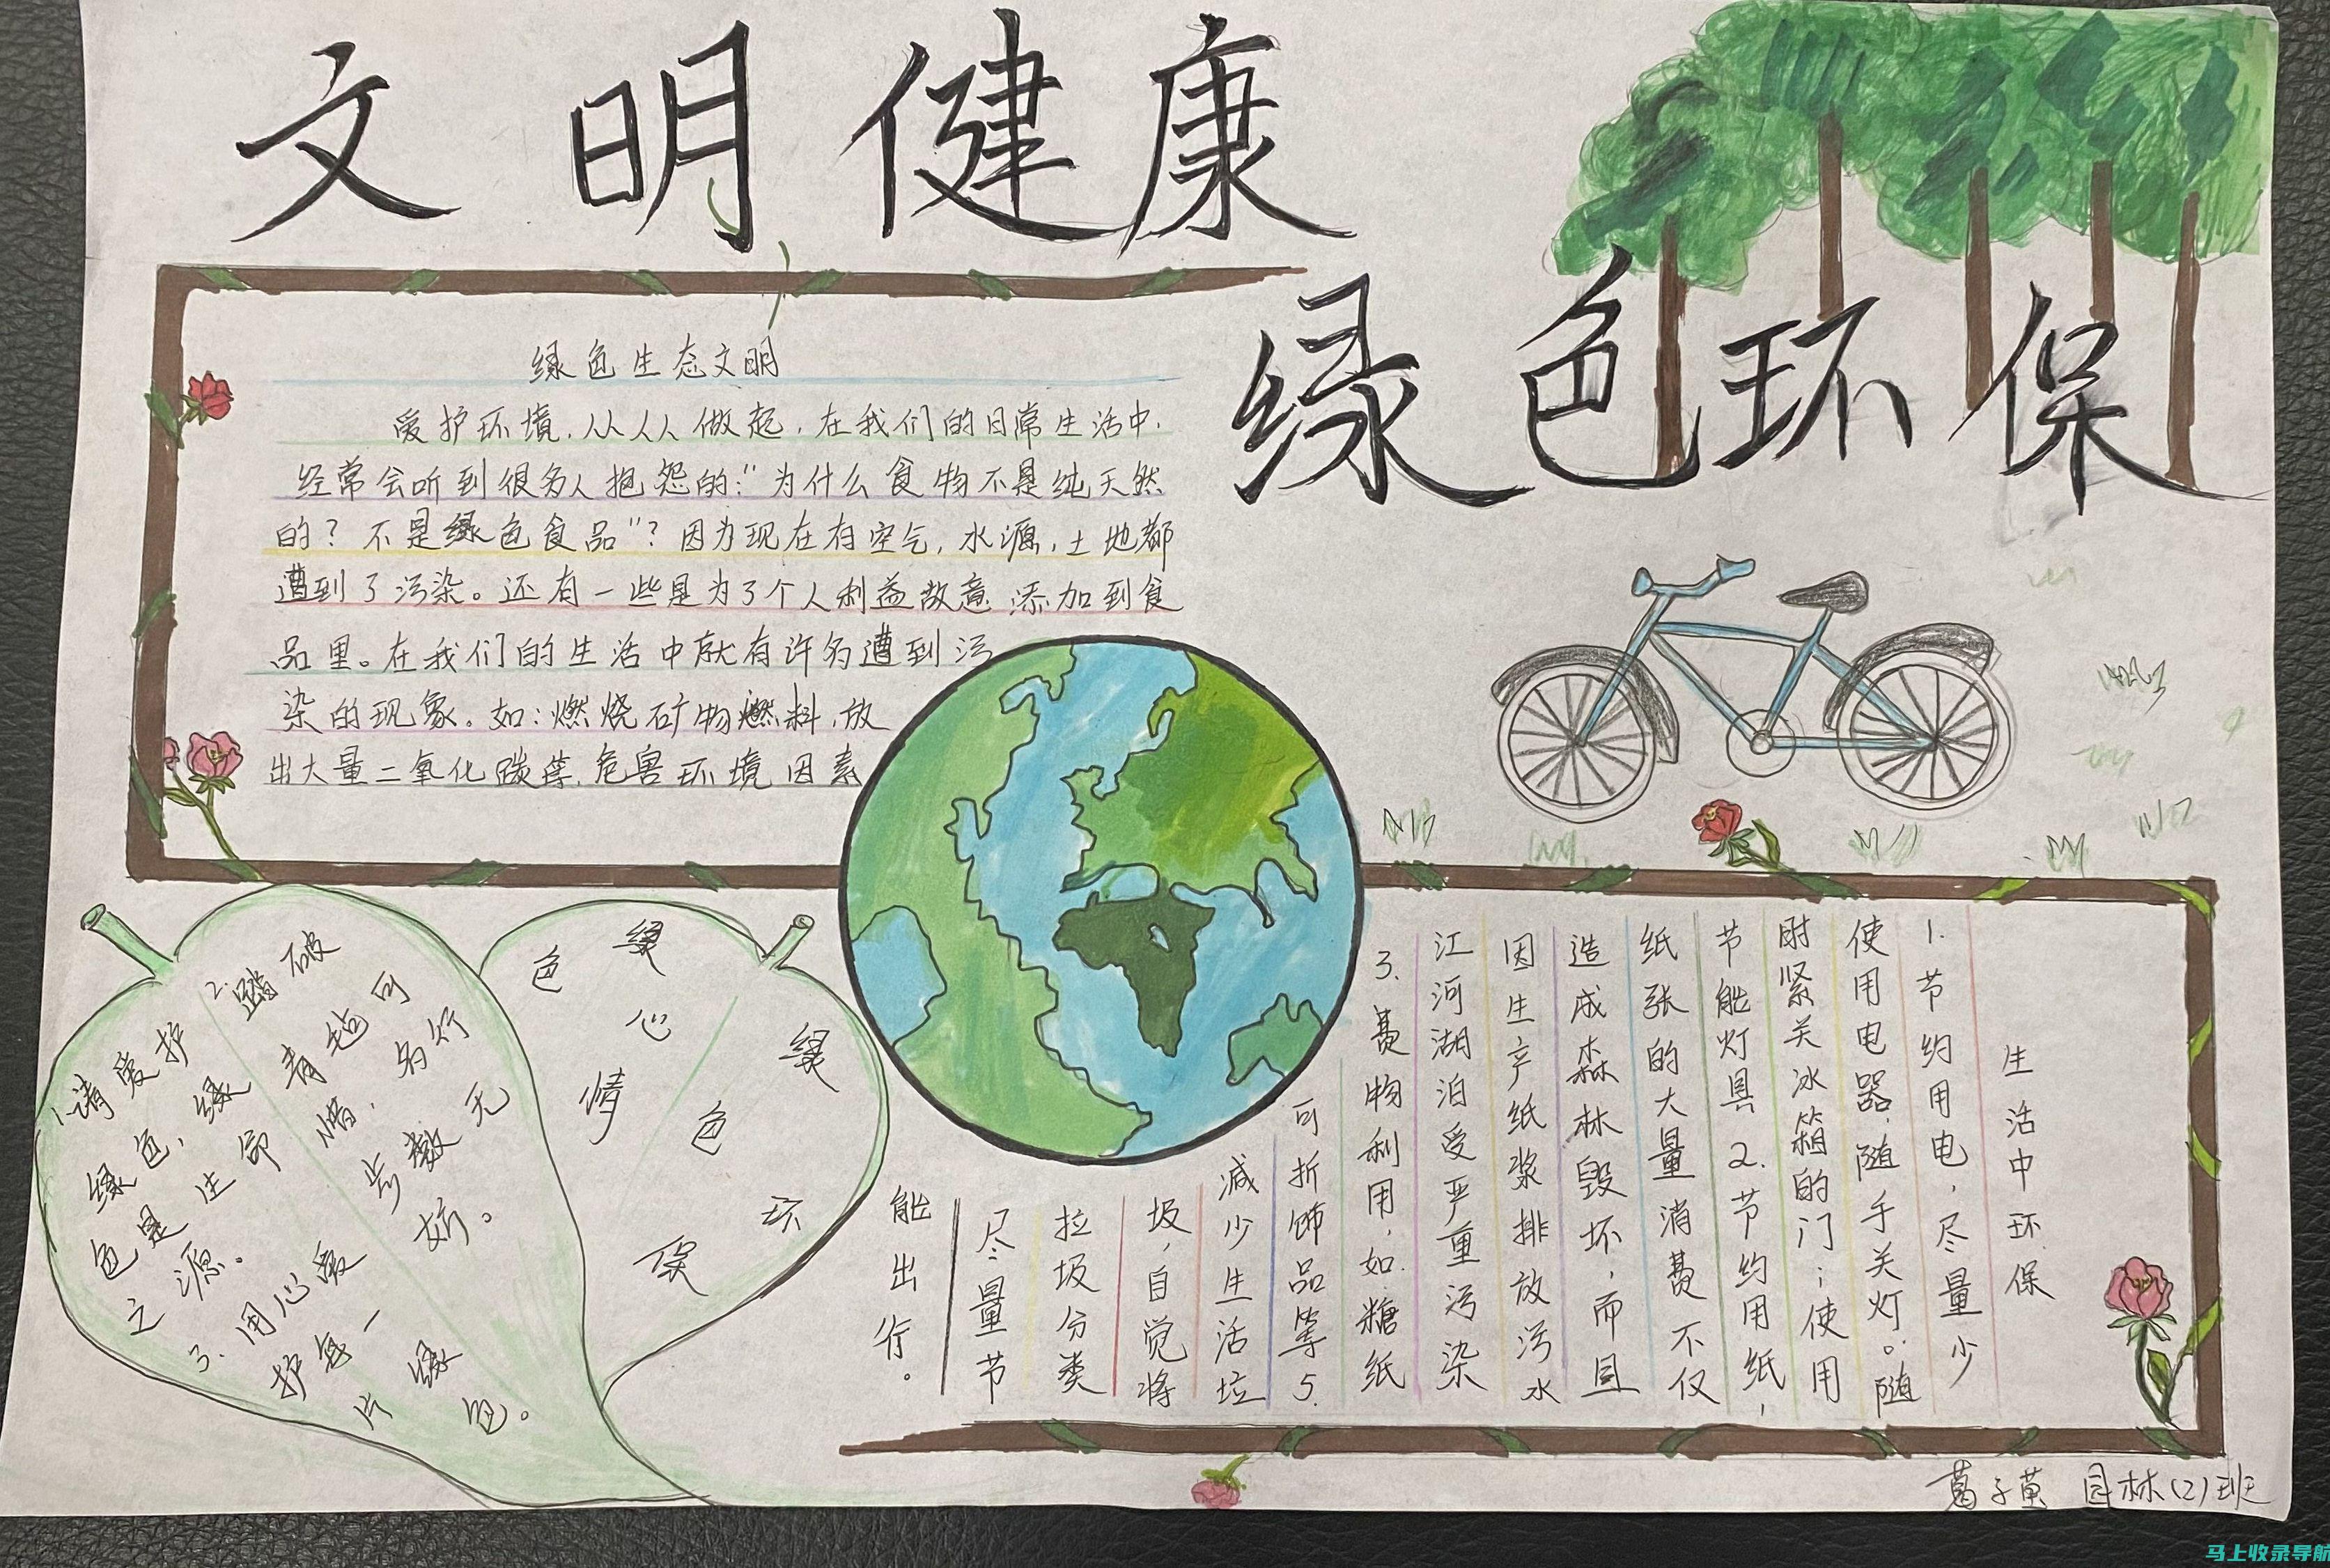 文明健康
绿色环保
绿色生态文明
爱护环境,从人人做起,在我们的日常生活中,
经常会听到很多人抱怨的:“为什么食物不是纯天然
的?不是绿色食品”?因为现在有空气,水源,土地都
遭到了污染。还有一些是为了个人利益故意添加到食
品里。在我们的生活中就有许多遭到污
染的现象。如:燃烧矿物燃料,放
出大量二氧化碳等,危害环境因素
1.请爱护
绿色,绿
色是生命
之源。
2.踏破
青毡可
惜,多行
步数无
妨。
3.用心爱
护每一
片绿
色。
绿色心情
绿色环保
生活中环保
1.节约用电,尽量少
使用电器,随手关灯。随
时紧关冰箱的门;使用
节能灯具2.节约用纸,
纸张的大量消费不仅
造成森林毁坏,而且
因生产纸浆排放污水
江河湖泊受严重污染
3.费物利用,如.糖纸
可折饰品等5.
减少生活垃
圾,自觉将
垃圾分类
尽量节
能出行。
园林(2)班
马上收录导航